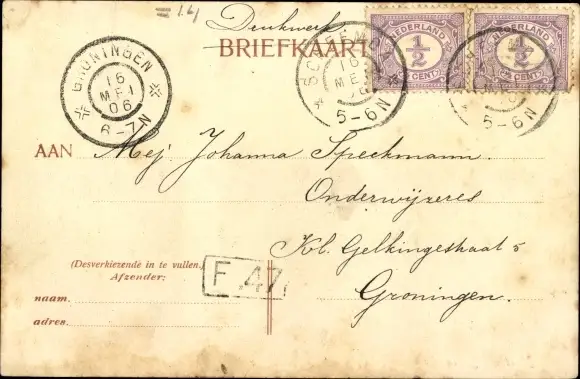 Drukwerk
BRIEFKAART
NEDERLAND NEDERLAND
½ ½
CENT CENT
GRONINGEN
16
MEI
06
6-7N
16
ME
5-6N
5-6N
AAN Mej Johanna Speckmann.
Onderwijzeres
Kl. Gelkingestraat 5
Groningen.
(Desverkiezende in te vullen.)
Afzender:
F.47
naam
adres.